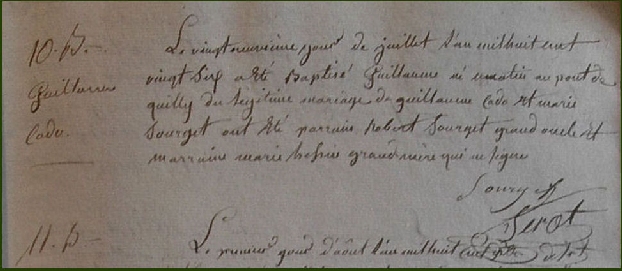 10. B.
Guillaume
Cado.
Le vingt neuvième jour de juillet l'an mil huit cent
vingt six a été Baptisé Guillaume né ce matin au pont de
quilly du légitime mariage de guillaume Cado et marie
Sourget ont été parrain Robert Sourget grand oncle et
marraine marie grandmère qui ne signe
Sourget
11. B
Le premier jour d'août l'an mil huit cent